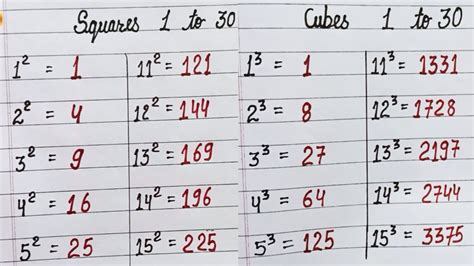 Squares 1 to 30
1² = 1 11² = 121
2² = 4 12² = 144
3² = 9 13² = 169
4² = 16 14² = 196
5² = 25 15² = 225
Cubes 1 to 30
1³ = 1 11³ = 1331
2³ = 8 12³ = 1728
3³ = 27 13³ = 2197
4³ = 64 14³ = 2744
5³ = 125 15³ = 3375